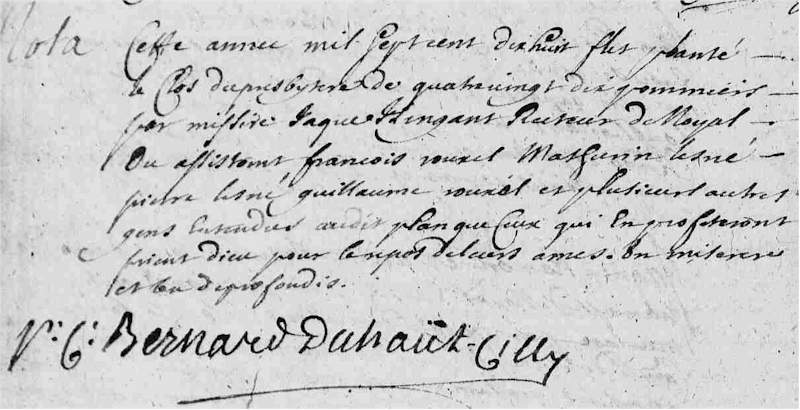 Nota Cette annee mil sept cent dix huit fut planté
le Clos du presbytere de quatre vingt dix pommiers
par missire Jaque Hingant Recteur de Noyal
Ou assistoint francois rouxel Mathurin lesné
pierre lesné guillaume rouxel et plusieurs autres
gens Entendus audit plan que Ceux qui En profiteront
prient dieu pour le repos de leurs ames. Un miserere
et un de profondis.
Bernard Duhaut-Cilly